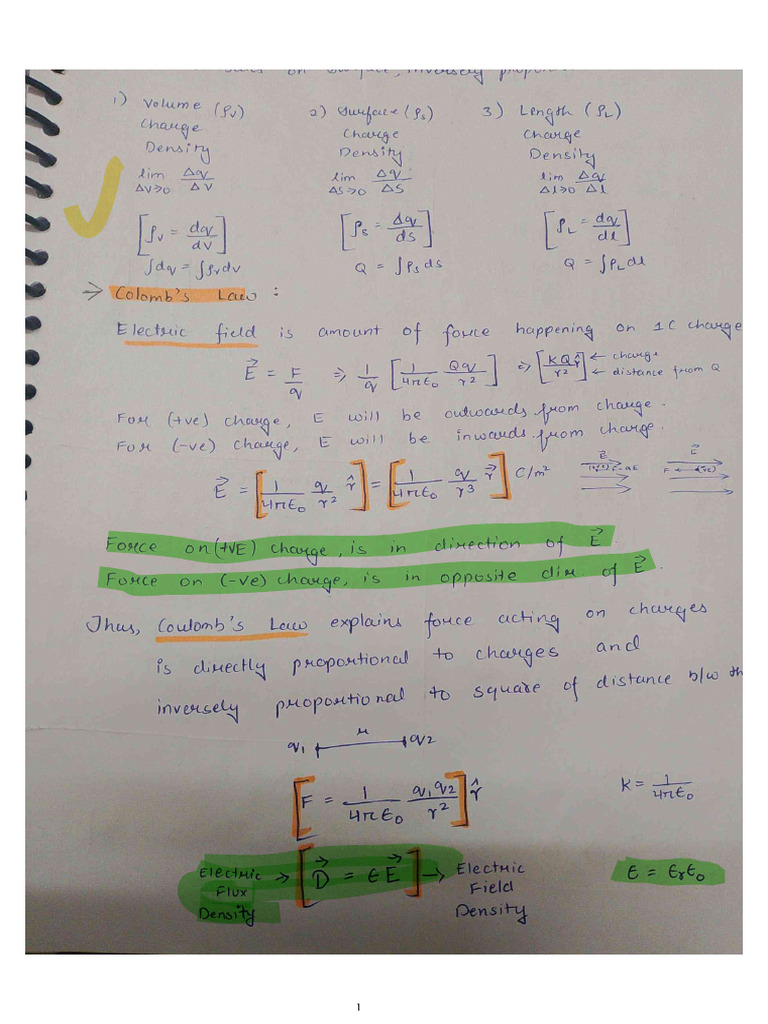 on surface, inversely
1) Volume (ρv) 2) Surface (ρs) 3) Length (ρL)
Charge Charge Charge
Density Density Density
lim Δv→0 Δq/Δv lim Δs→0 Δq/Δs lim Δl→0 Δq/Δl
[ρv = dq/dv] [ρs = Δq/ds] [ρL = dq/dl]
∫dq = ∫ρv dv Q = ∫ρs ds Q = ∫ρL dl
→ Colomb's Law :
Electric field is amount of force happening on 1C charge
E⃗ = F/q ⇒ 1/q [1/4πε₀ Qq/r²] ⇒ [KQ/r² r̂] ← charge ← distance from Q
For (+ve) charge, E will be outwards from charge.
For (-ve) charge, E will be inwards from charge.
E⃗ = [1/4πε₀ q/r² r̂] = [1/4πε₀ q/r³ r⃗] C/m² E⃗ E⃗
Force on (+VE) charge, is in direction of E⃗.
Force on (-ve) charge, is in opposite dir. of E⃗.
Thus, Coulomb's Law explains force acting on charges
is directly proportional to charges and
inversely proportional to square of distance b/w th
q₁ r q₂
[F = 1/4πε₀ q₁q₂/r²] r̂ K = 1/4πε₀
Electric Flux Density → [D⃗ = εE⃗] → Electric Field Density ε = εrε₀
1